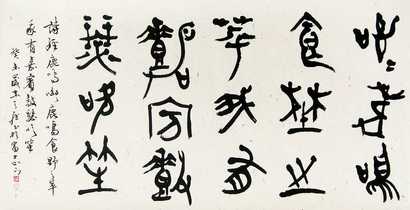 呦呦鹿鳴
食野之
苹我有
嘉賓鼓
瑟吹笙
詩經鹿鳴呦呦鹿鳴食野之苹
我有嘉賓鼓瑟吹笙
癸未歲